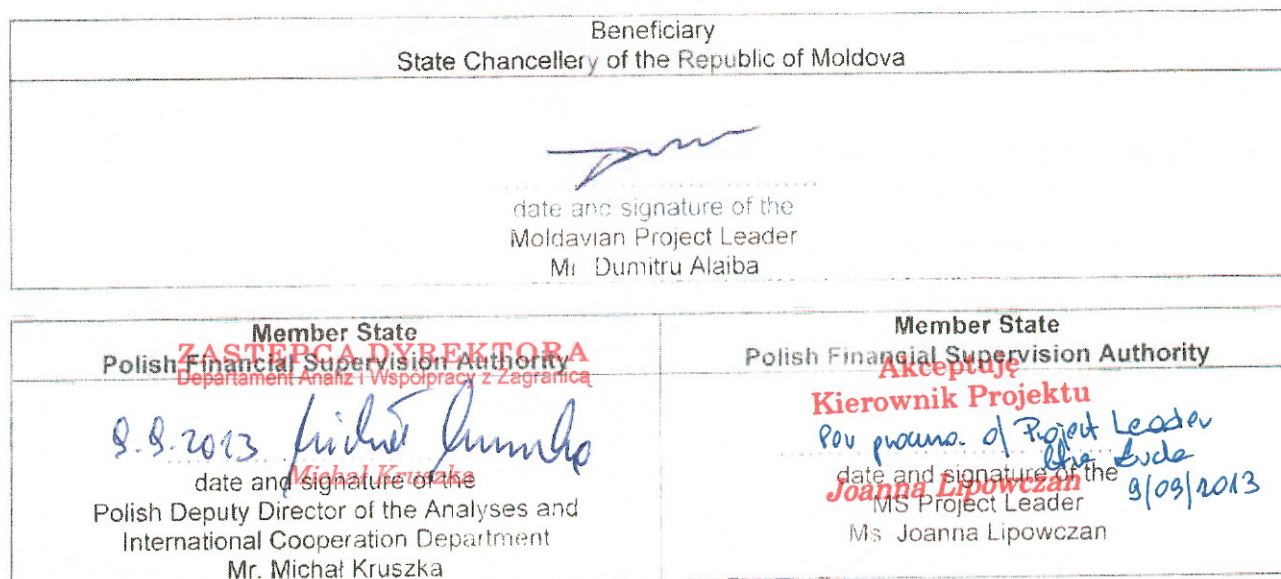 Beneficiary
State Chancellery of the Republic of Moldova
date and signature of the
Moldavian Project Leader
Mr. Dumitru Alaiba
Member State
Polish Financial Supervision Authority
ZASTĘPCA DYREKTORA
Departament Analiz i Współpracy z Zagranicą
9.9.2013 Michał Kruszka
Michał Kruszka
date and signature of the
Polish Deputy Director of the Analyses and
International Cooperation Department
Mr. Michał Kruszka
Member State
Polish Financial Supervision Authority
Akceptuję
Kierownik Projektu
Project Leader
date and signature of the
Joanna Lipowczan
9/09/2013
MS Project Leader
Ms Joanna Lipowczan